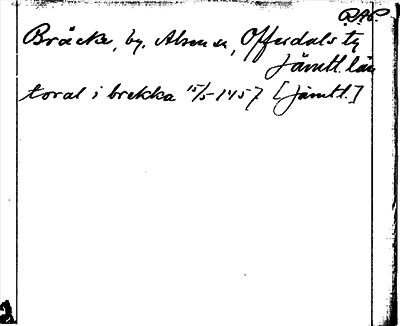 DAP
Bräcke, by. Alsen sn, Offerdals tg
Jämtl. län
toral i brekka 15/5-1457 [Jämtl.]